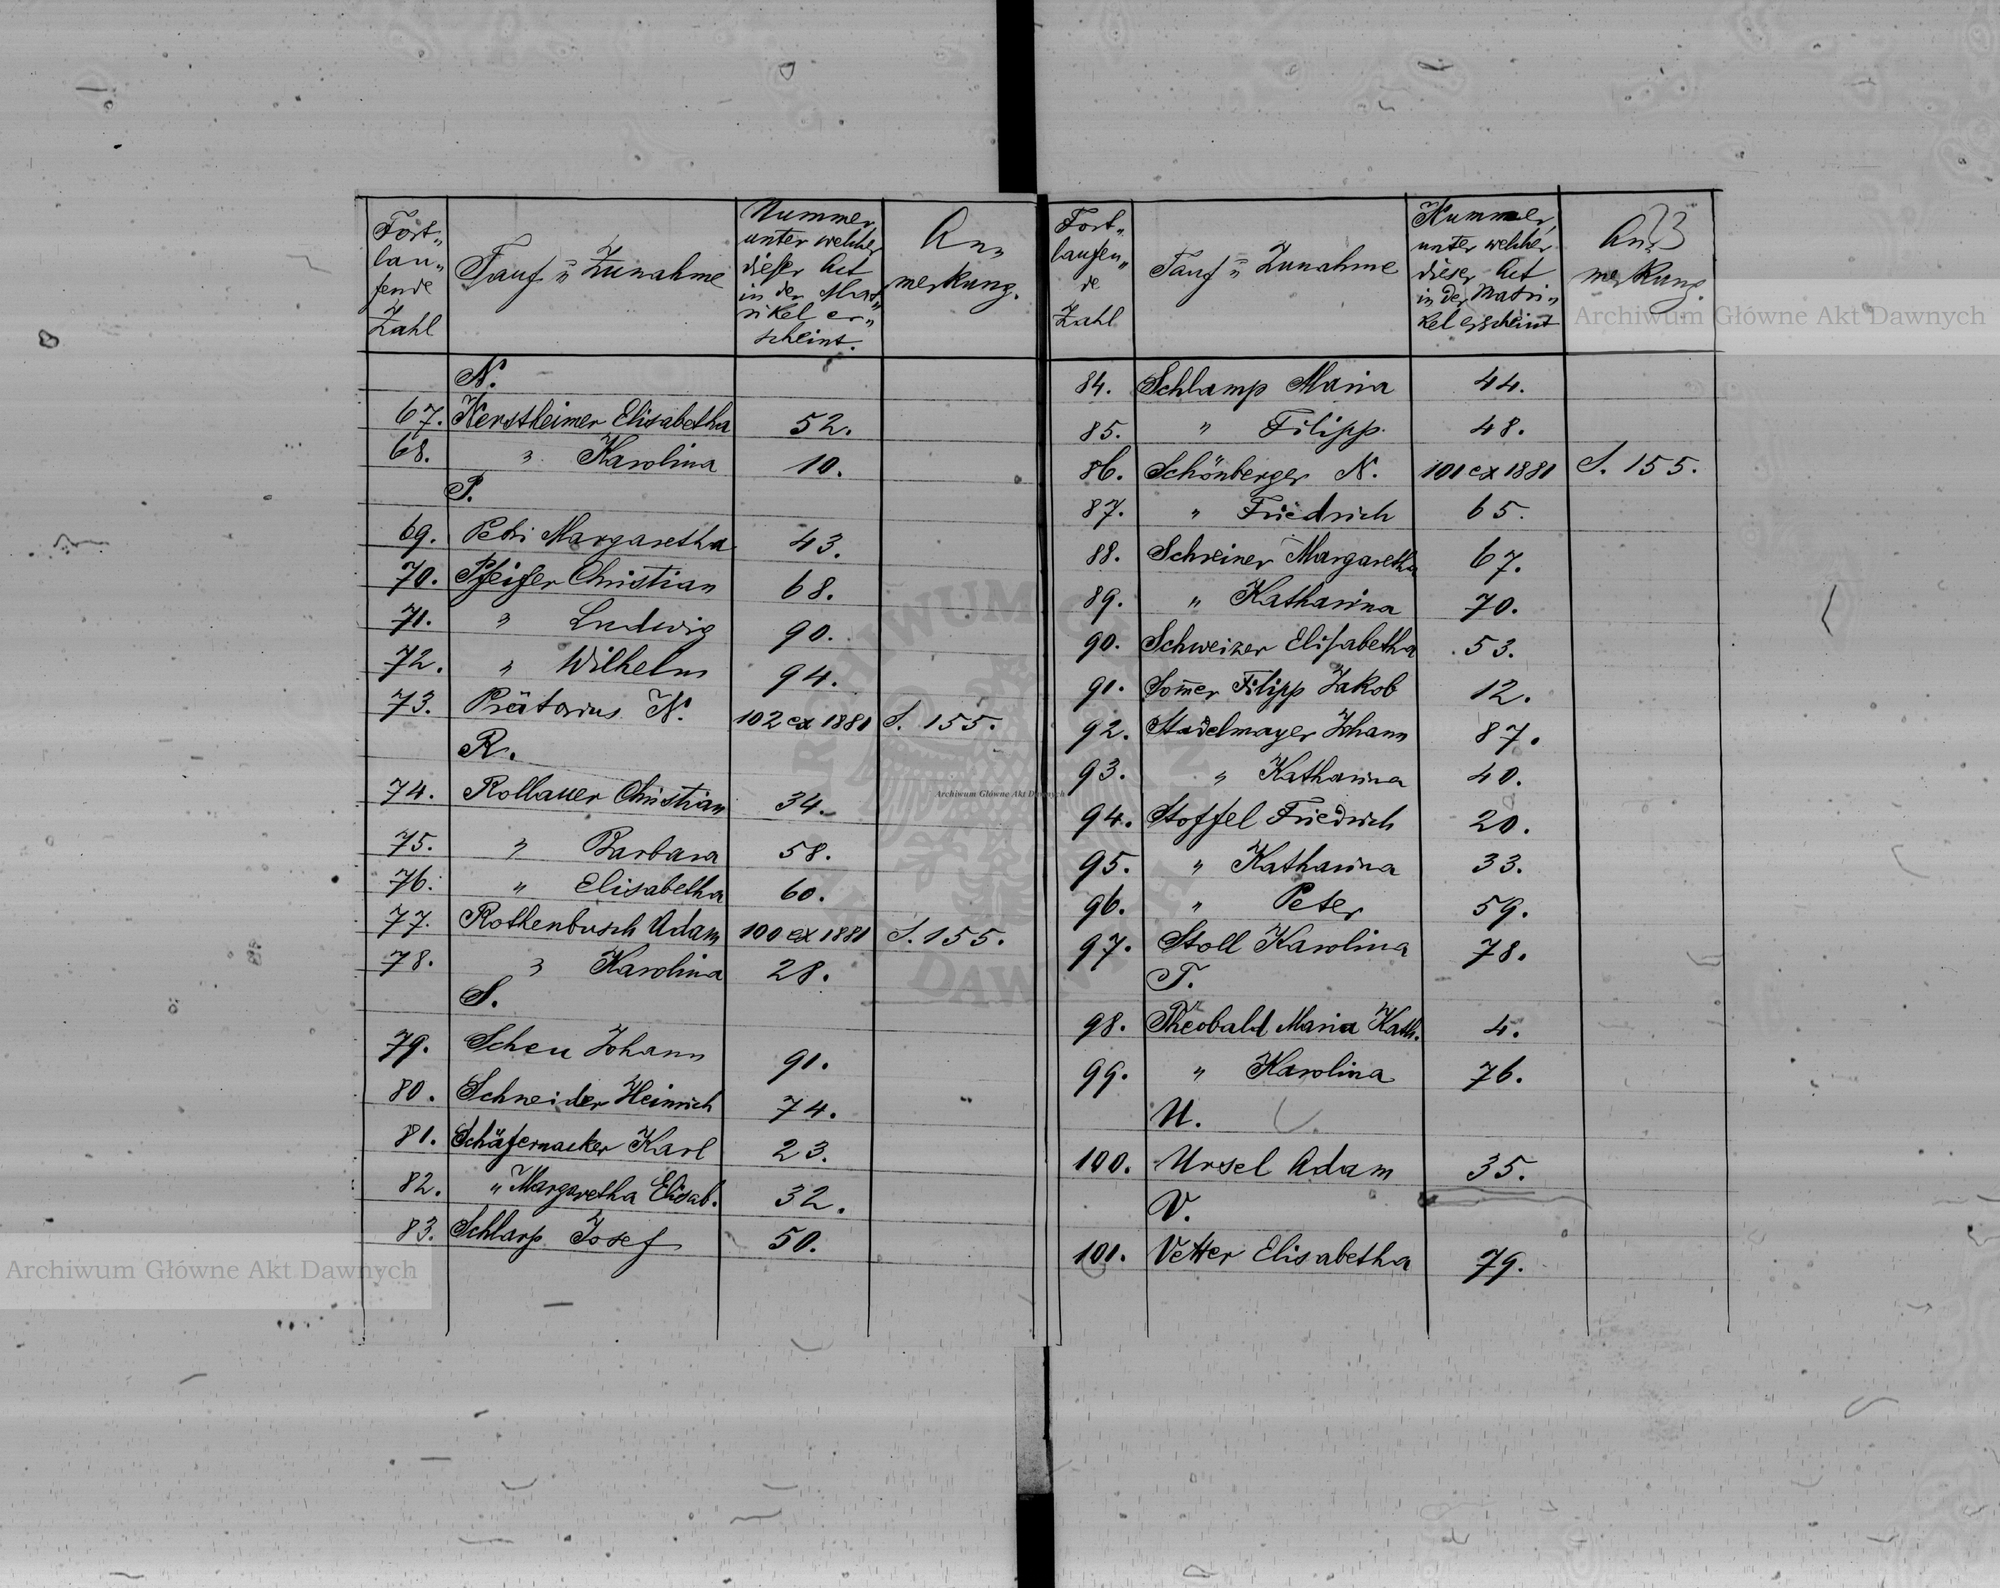 Fort„ lau„ fende Zahl | Tauf „ Zunahme | Nummer unter welcher dieser Act in der Mat„ rikel er„ scheint. | An„ merkung.
N.
67. Kerstheimer Elisabetha 52.
68. „ Karolina 10.
P.
69. Petri Margaretha 43.
70. Pfeifer Christian 68.
71. „ Ludwig 90.
72. „ Wilhelm 94.
73. Prätorius N. 102 ex 1881 S. 155.
R.
74. Rollauer Christian 34.
75. „ Barbara 58.
76. „ Elisabetha 60.
77. Rothenbusch Adam 100 ex 1881 S. 155.
78. „ Karolina 28.
S.
79. Scheu Johann 91.
80. Schneider Heinrich 74.
81. Schäfernacker Karl 23.
82. „ Margaretha Elisab. 32.
83. Schlarp Josef 50.
Fort„ laufen„ de Zahl | Tauf „ Zunahme | Nummer unter welcher dieser Act in der Matri„ kel erscheint | An„ merkung.
84. Schlamp Maria 44.
85. „ Filipp 48.
86. Schönberger N. 101 ex 1881 S. 155.
87. „ Friedrich 65.
88. Schreiner Margaretha 67.
89. „ Katharina 70.
90. Schweizer Elisabetha 53.
91. Som̄er Filipp Jakob 12.
92. Stadelmayer Johann 87.
93. „ Katharina 40.
94. Stoffel Friedrich 20.
95. „ Katharina 33.
96. „ Peter 59.
97. Stoll Karolina 78.
T.
98. Theobald Maria Kath. 4.
99. „ Karolina 76.
U.
100. Ursel Adam 35.
V.
101. Vetter Elisabetha 79.
Archiwum Główne Akt Dawnych
Archiwum Główne Akt Dawnych
Archiwum Główne Akt Dawnych